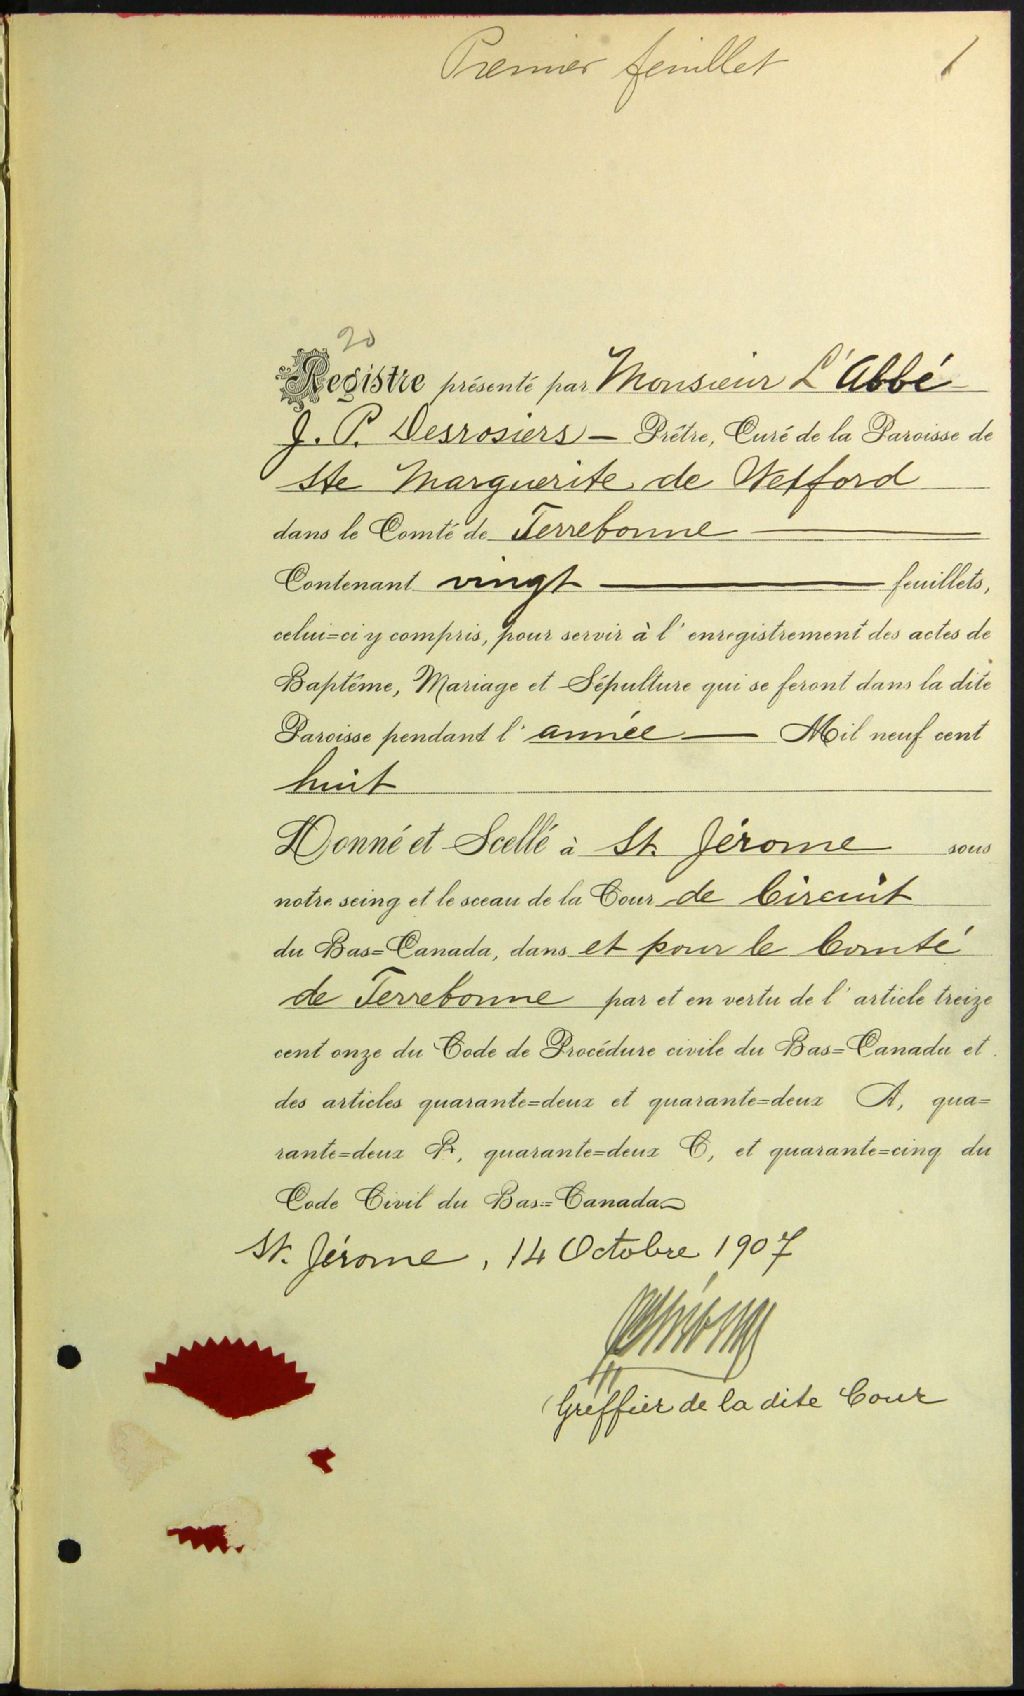 Premier feuillet 1
20
Registre présenté par Monsieur L'Abbé
J. P. Desrosiers — Prêtre, Curé de la Paroisse de
Ste Marguerite de Wexford
dans le Comté de Terrebonne
Contenant vingt feuillets,
celui=ci y compris, pour servir à l'enregistrement des actes de
Baptême, Mariage et Sépulture qui se feront dans la dite
Paroisse pendant l'année — Mil neuf cent
huit
Donné et Scellé à St. Jérome sous
notre seing et le sceau de la Cour de Circuit
du Bas=Canada, dans et pour le Comté
de Terrebonne par et en vertu de l'article treize
cent onze du Code de Procédure civile du Bas=Canada et
des articles quarante=deux et quarante=deux A, qua=
rante=deux B, quarante=deux C, et quarante=cinq du
Code Civil du Bas=Canada
St. Jérome, 14 Octobre 1907
Greffier de la dite Cour